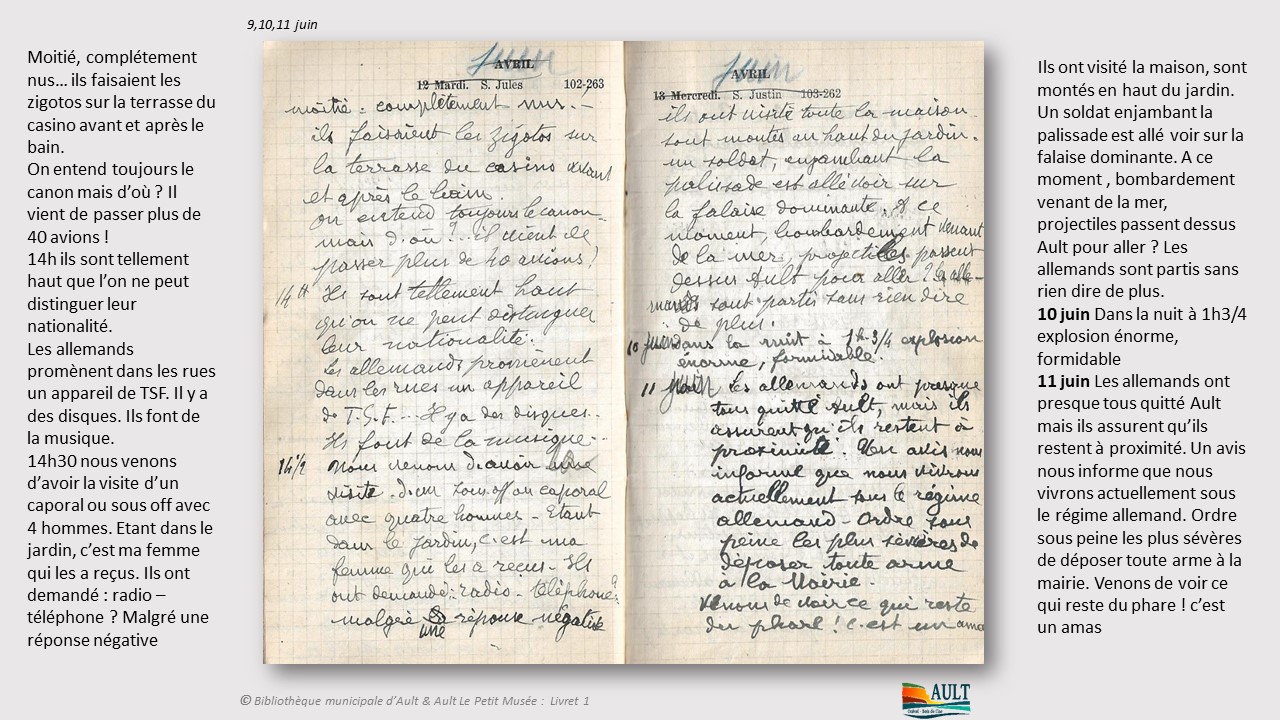 9,10,11 juin
Moitié, complétement
nus… ils faisaient les
zigotos sur la terrasse du
casino avant et après le
bain.
On entend toujours le
canon mais d’où ? Il
vient de passer plus de
40 avions !
14h ils sont tellement
haut que l’on ne peut
distinguer leur
nationalité.
Les allemands
promènent dans les rues
un appareil de TSF. Il y a
des disques. Ils font de
la musique.
14h30 nous venons
d’avoir la visite d’un
caporal ou sous off avec
4 hommes. Etant dans le
jardin, c’est ma femme
qui les a reçus. Ils ont
demandé : radio –
téléphone ? Malgré une
réponse négative
Juin
AVRIL
12 Mardi. S. Jules 102-263
moitié. complètement nus.-
ils faisaient les zigotos sur
la terrasse du casino avant
et après le bain.
on entend toujours le canon-
mais d'où ?.. il vient de
passer plus de 40 avions !
14 H Ils sont tellement haut
qu'on ne peut distinguer
leur nationalité.
Les allemands promènent
dans les rues un appareil
de T.S.F... Il y a des disques..
Ils font de la musique..
14 ½ Nous venons d'avoir une
visite. d'un sous-off ou caporal
avec quatre hommes - Etant
dans le jardin, c'est ma
femme qui les a reçus - Ils
ont demandé: radio - téléphone?
malgré une réponse négative
Juin
AVRIL
13 Mercredi. S. Justin 103-262
ils ont visité toute la maison.
sont montés en haut du jardin.
un soldat, enjambant la
palissade est allé voir sur
la falaise dominante. A ce
moment, bombardement venant
de la mer, projectiles passent
dessus Ault pour aller ? les alle-
mands sont partis sans rien dire
de plus.
10 juin Dans la nuit à 1h 3/4 explosion
énorme, formidable.
11 juin Les allemands ont presque
tous quitté Ault, mais ils
assurent qu'ils restent à
proximité. Un avis nous
informe que nous vivrons
actuellement sous le régime
allemand - Ordre sous
peine les plus sévères de
déposer toute arme
à la Mairie.
Venons de voir ce qui reste
du phare ! C'est un amas
Ils ont visité la maison, sont
montés en haut du jardin.
Un soldat enjambant la
palissade est allé voir sur la
falaise dominante. A ce
moment , bombardement
venant de la mer,
projectiles passent dessus
Ault pour aller ? Les
allemands sont partis sans
rien dire de plus.
10 juin Dans la nuit à 1h3/4
explosion énorme,
formidable
11 juin Les allemands ont
presque tous quitté Ault
mais ils assurent qu’ils
restent à proximité. Un avis
nous informe que nous
vivrons actuellement sous
le régime allemand. Ordre
sous peine les plus sévères
de déposer toute arme à la
mairie. Venons de voir ce
qui reste du phare ! c’est
un amas
© Bibliothèque municipale d’Ault & Ault Le Petit Musée : Livret 1
AULT